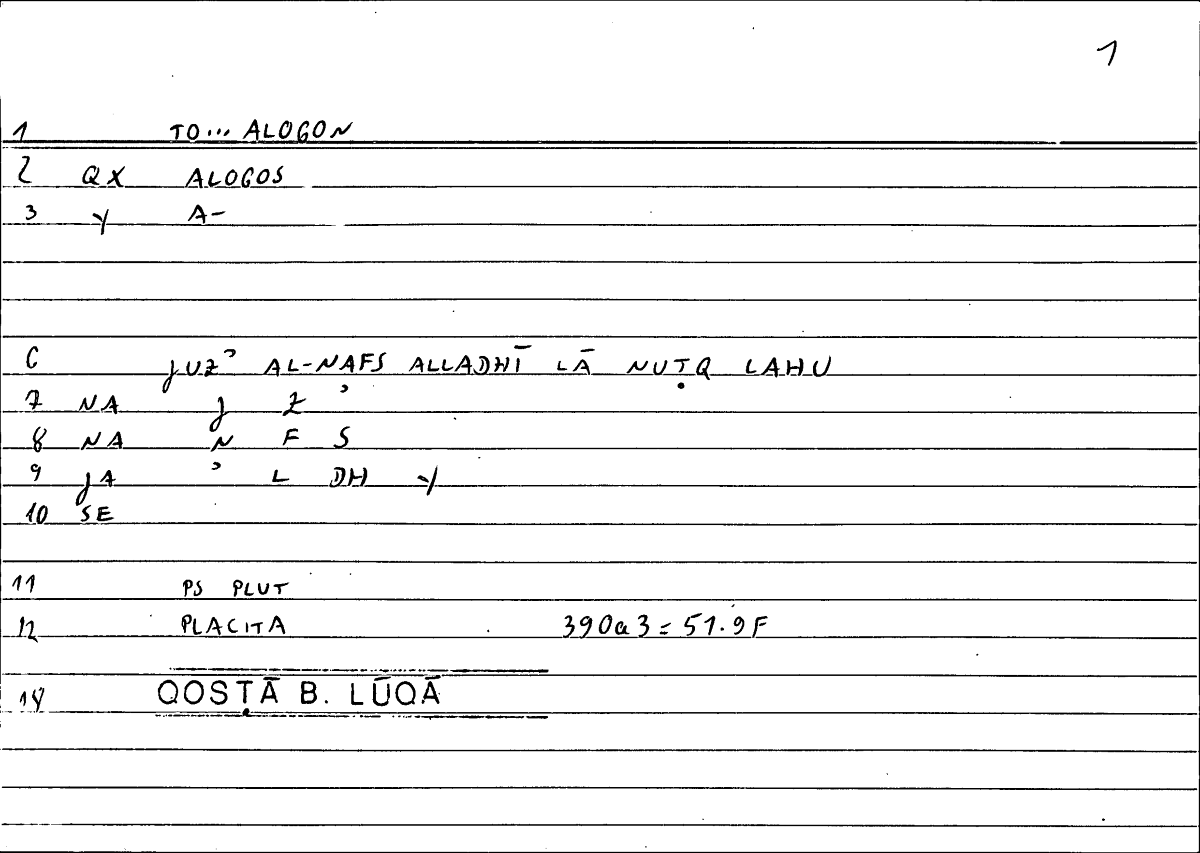 1
1 TO... ALOGON
2 QX ALOGOS
3 Y A-
6 JUZʾ AL-NAFS ALLADHĪ LĀ NUṬQ LAHU
7 NA J Z ʾ
8 NA N F S
9 JA ʾ L DH Y
10 SE
11 PS PLUT
12 PLACITA 390a3=51.9F
14 QOSṬĀ B. LŪQĀ